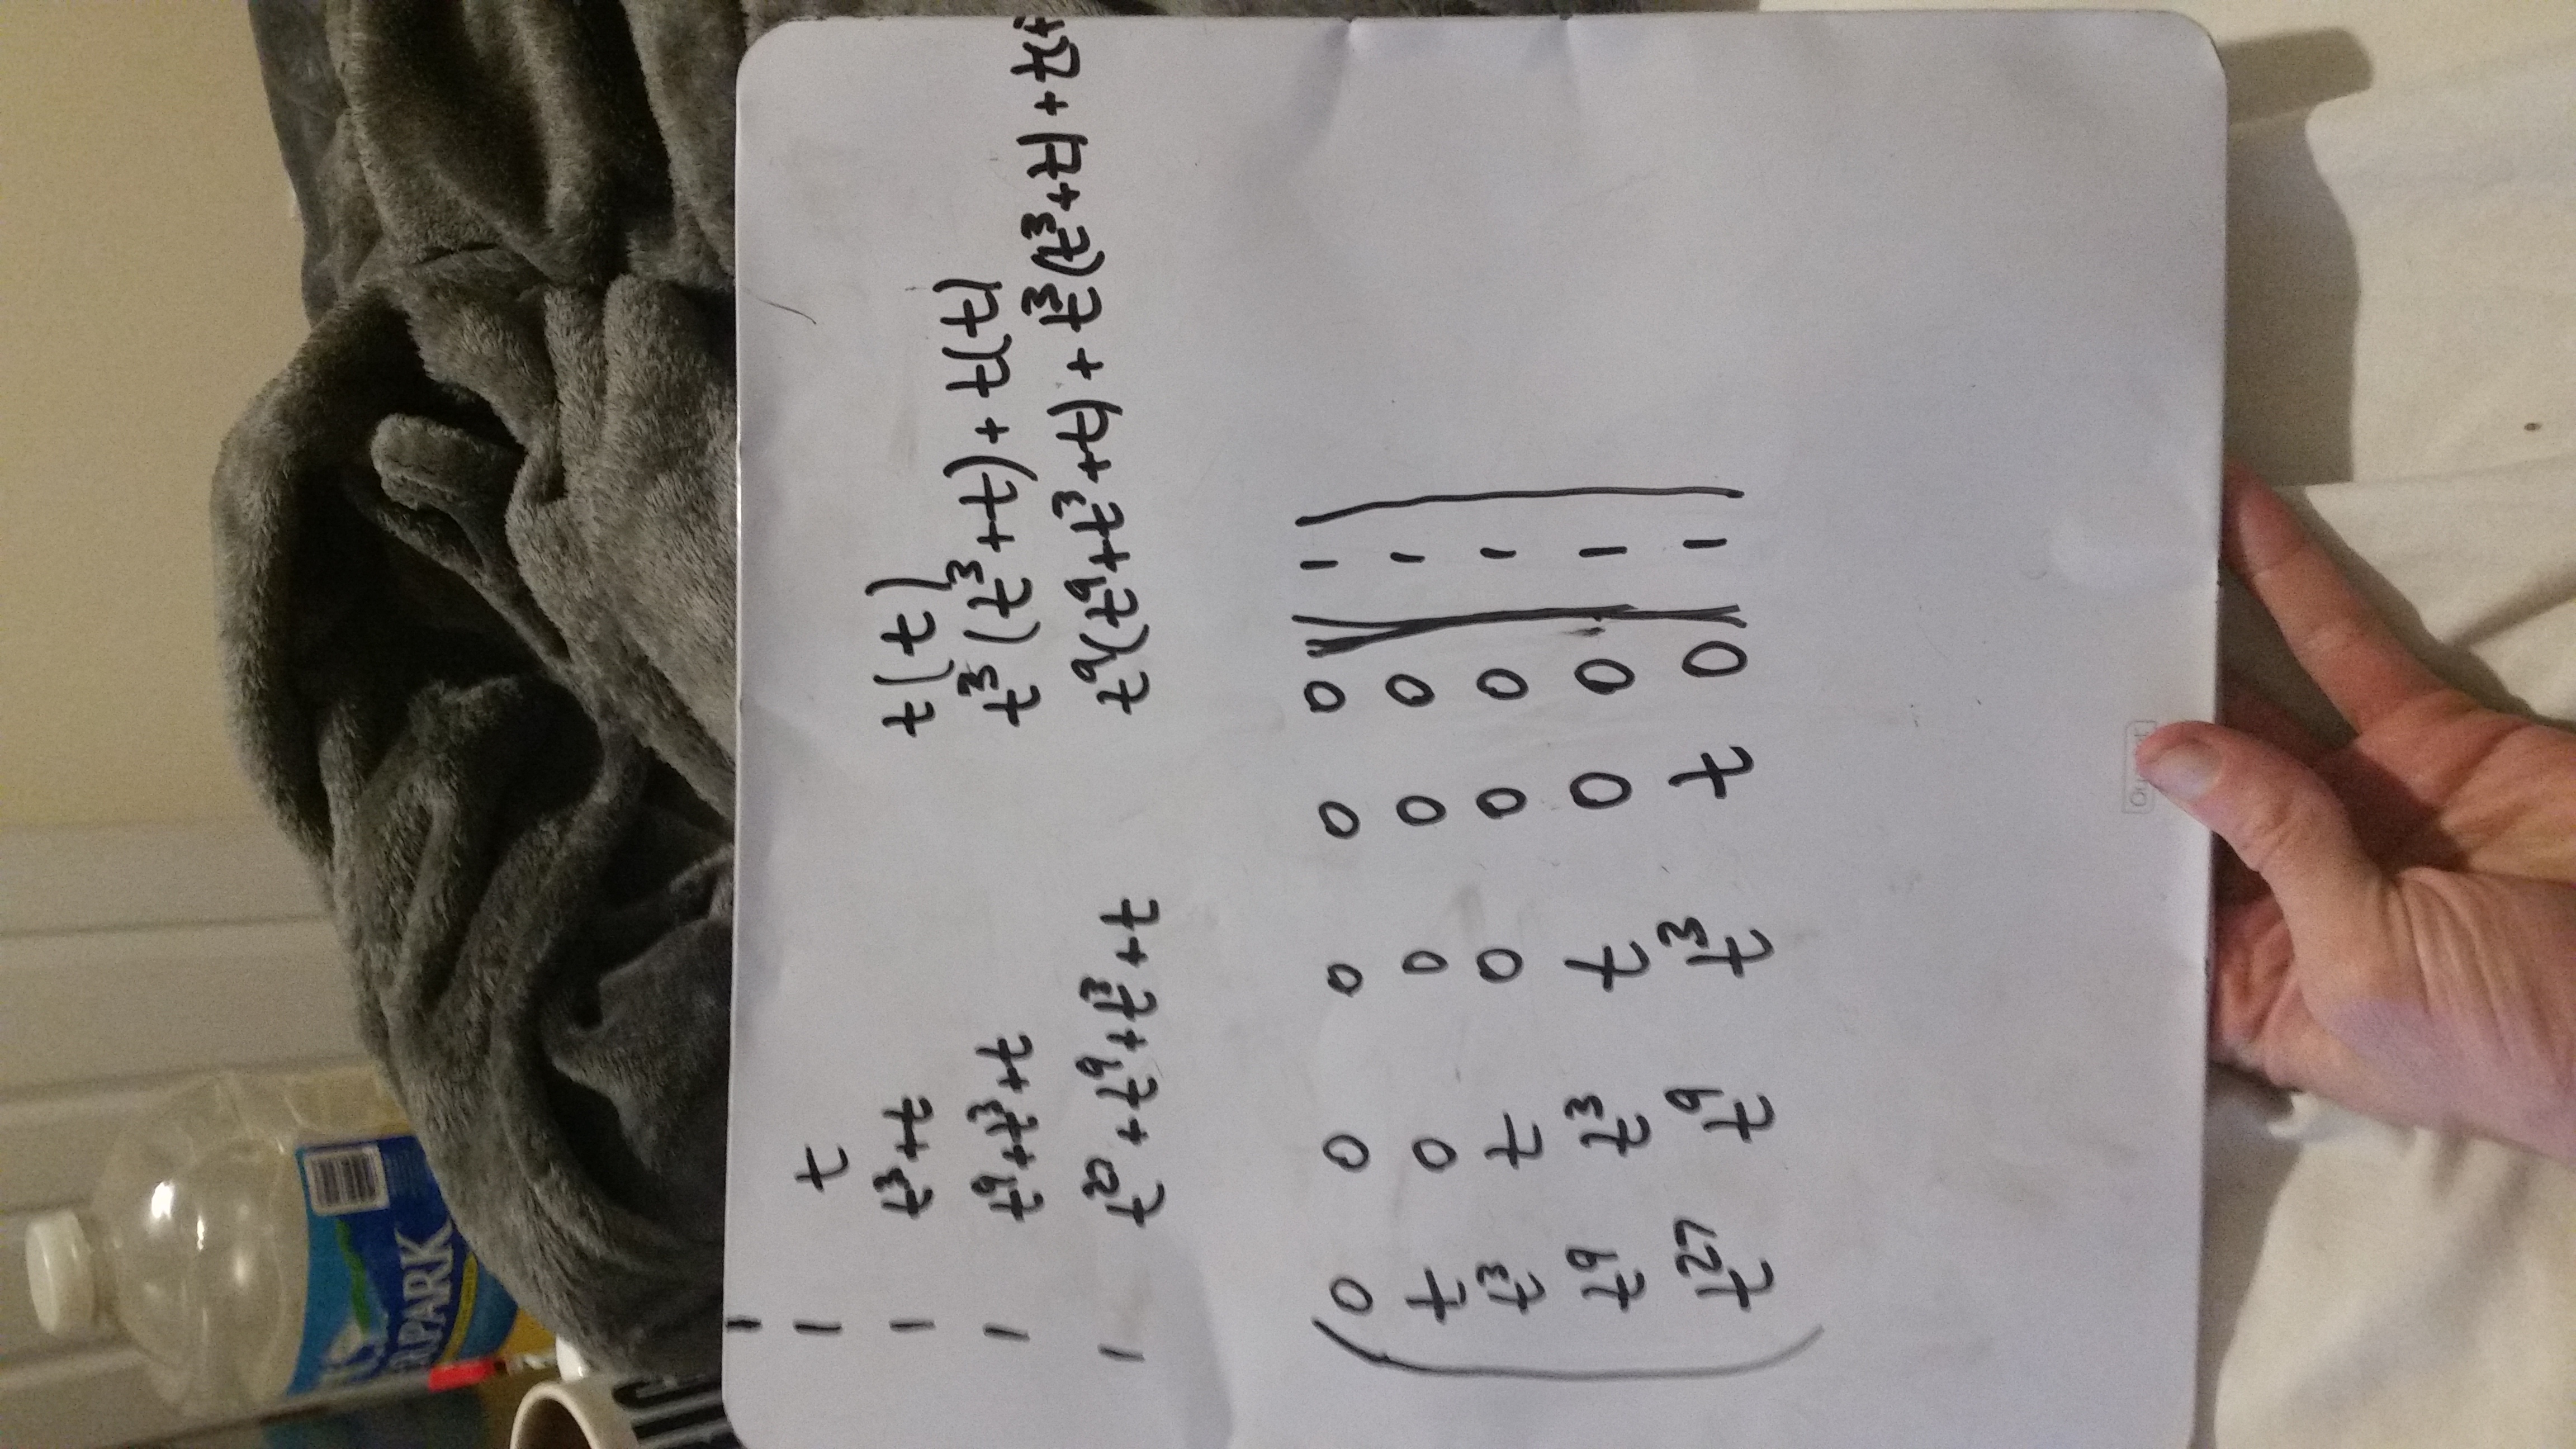 R PARK
1
1 t
1 t³+t t(t)
1 t⁹+t³+t t³(t³+t)+t(t)
1 t²⁷+t⁹+t³+t t⁹(t⁹+t³+t)+t³(t³+t)+t(t
0 0 0 0 0 1
t 0 0 0 0 1
t³ t 0 0 0 1
t⁹ t³ t 0 0 1
t²⁷ t⁹ t³ t 0 1